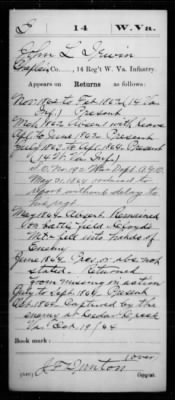 I 14 W. Va.
John L. Irwin
Co., 14 Reg't W. Va. Infantry.
Appears on
Returns as follows:
Nov. 1862 to Feb. 1863 (14 Va.
Inf.) Present
Mch. 1863 Absent with leave
Apl. to June 1863 Present
July 1863 to Apl. 1864 Present
(14 W. Va. Inf.)
S.O. No. 192 War Dept. A.G.O.
May 31, 1864 ordered to
report without delay to
his regt.
May 1864 Absent. Remained
on battle field at Cloyds
Mt. & fell into hands of
Enemy
June 1864 Pres. or abs. not
stated. Returned
from missing in action
July to Sept. 1864 Present
Oct. 1864 Captured by the
enemy at Cedar Creek
Va. Oct. 19/64
Book mark:
(over)
(547) J. F. Denton
Copyist.